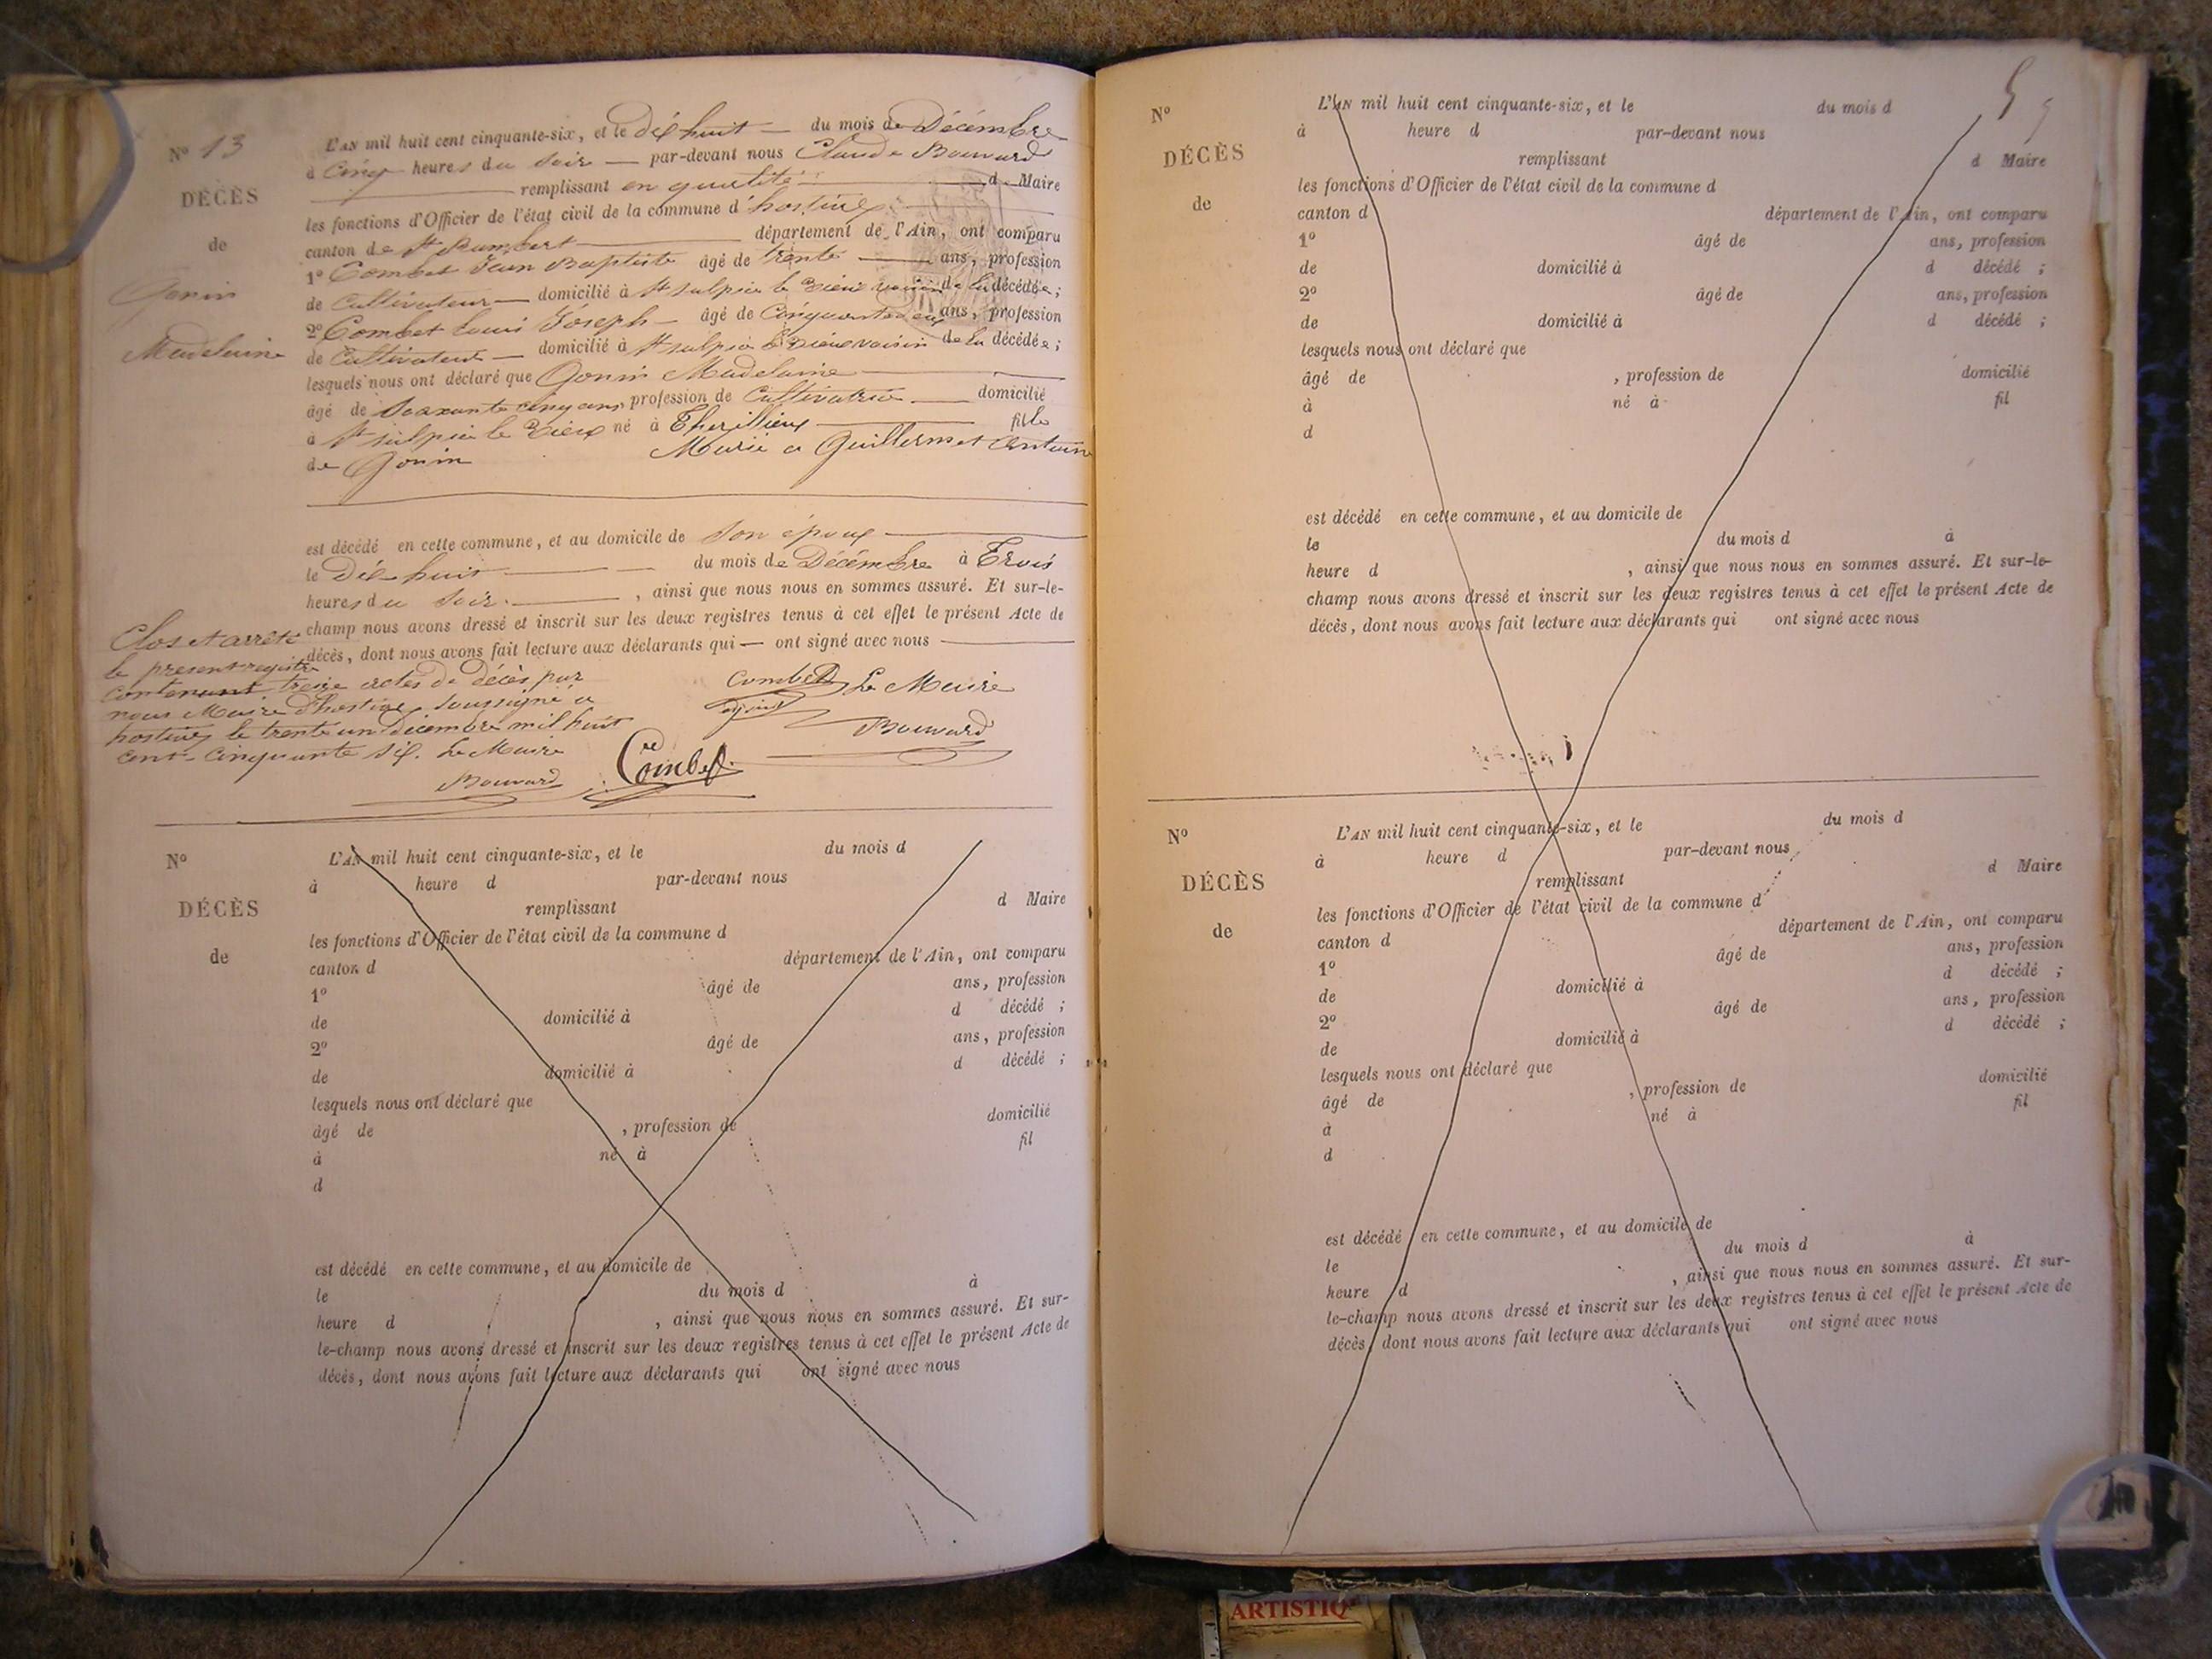 N° 13
DÉCÈS
de
Gonin
Madelaine
L'AN mil huit cent cinquante-six, et le dix huit du mois de Décémbre
à Cinq heures du Soir par-devant nous Claude Bouvard
remplissant en qualité de Maire
les fonctions d'Officier de l'état civil de la commune d'hostiaz
canton de St Rambert département de l'Ain, ont comparu
1° Combet Jean Baptiste âgé de trente ans, profession
de Cultivateur domicilié à St sulpice le Vieux voisin de la décédée;
2° Combet Louis Joseph âgé de Cinquante deux ans, profession
de Cultivateur domicilié à St sulpice le Vieux voisin de la décédée;
lesquels nous ont déclaré que Gonin Madelaine
âgé de Soaxante cinq ans, profession de Cultivatrice domicilié
à St sulpice le Vieux né à Thezillieux fille
de Gonin Marié a Guillermet Antoine
est décédé en cette commune, et au domicile de Son époux
le Dix huit du mois de Décémbre à Trois
heures du Soir. , ainsi que nous nous en sommes assuré. Et sur-le-
champ nous avons dressé et inscrit sur les deux registres tenus à cet effet le présent Acte de
décès, dont nous avons fait lecture aux déclarants qui — ont signé avec nous
Clos et arrêté
le present registre
contenant treize actes de décès par
nous Maire d'hostiaz soussigné a
hostiaz le trente un Décembre mil huit
cent-cinquante six. Le Maire
Bouvard
Combet
Le Maire
Bouvard
Combet
N°
DÉCÈS
de
L'AN mil huit cent cinquante-six, et le du mois d
à heure d par-devant nous
remplissant d Maire
les fonctions d'Officier de l'état civil de la commune d
canton d département de l'Ain, ont comparu
1° âgé de ans, profession
de domicilié à d décédé ;
2° âgé de ans, profession
de domicilié à d décédé ;
lesquels nous ont déclaré que
âgé de , profession de domicilié
à né à fil
d
est décédé en cette commune, et au domicile de
le du mois d à
heure d , ainsi que nous nous en sommes assuré. Et sur-
le-champ nous avons dressé et inscrit sur les deux registres tenus à cet effet le présent Acte de
décès, dont nous avons fait lecture aux déclarants qui ont signé avec nous
N°
DÉCÈS
de
L'AN mil huit cent cinquante-six, et le du mois d
à heure d par-devant nous
remplissant d Maire
les fonctions d'Officier de l'état civil de la commune d
canton d département de l'Ain, ont comparu
1° âgé de ans, profession
de domicilié à d décédé ;
2° âgé de ans, profession
de domicilié à d décédé ;
lesquels nous ont déclaré que
âgé de , profession de domicilié
à né à fil
d
est décédé en cette commune, et au domicile de
le du mois d à
heure d , ainsi que nous nous en sommes assuré. Et sur-le-
champ nous avons dressé et inscrit sur les deux registres tenus à cet effet le présent Acte de
décès, dont nous avons fait lecture aux déclarants qui ont signé avec nous
N°
DÉCÈS
de
L'AN mil huit cent cinquante-six, et le du mois d
à heure d par-devant nous
remplissant d Maire
les fonctions d'Officier de l'état civil de la commune d
canton d département de l'Ain, ont comparu
1° âgé de ans, profession
de domicilié à d décédé ;
2° âgé de ans, profession
de domicilié à d décédé ;
lesquels nous ont déclaré que
âgé de , profession de domicilié
à né à fil
d
est décédé en cette commune, et au domicile de
le du mois d à
heure d , ainsi que nous nous en sommes assuré. Et sur-
le-champ nous avons dressé et inscrit sur les deux registres tenus à cet effet le présent Acte de
décès, dont nous avons fait lecture aux déclarants qui ont signé avec nous
ARTISTIQ